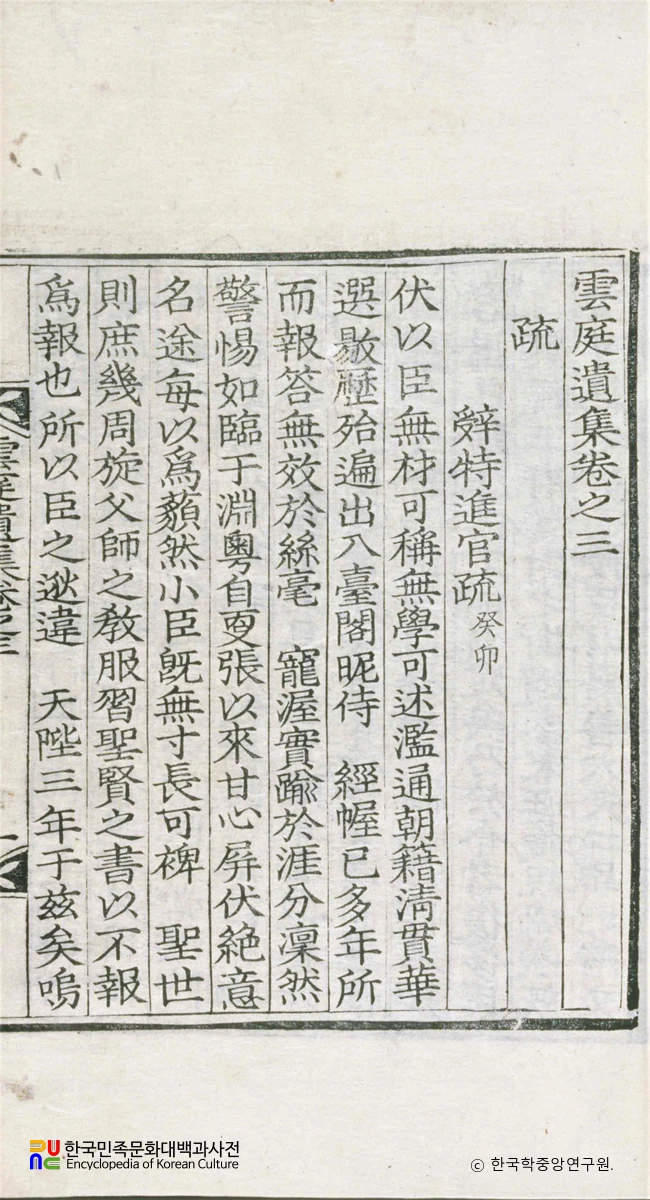 雲庭遺集卷之三
疏
辭特進官疏 癸卯
伏以臣無材可稱無學可述濫通朝籍淸貫華
選敭歷殆遍出入臺閣昵侍 經幄已多年所
而報答無效於絲毫 寵渥實踰於涯分凜然
警惕如臨于淵粤自更張以來甘心屛伏絶意
名途每以爲藐然小臣旣無寸長可裨 聖世
則庶幾周旋父師之敎服習聖賢之書以不報
爲報也所以臣之逖違 天陛三年于玆矣嗚
雲庭遺集卷之三
한국민족문화대백과사전
Encyclopedia of Korean Culture
ⓒ 한국학중앙연구원.